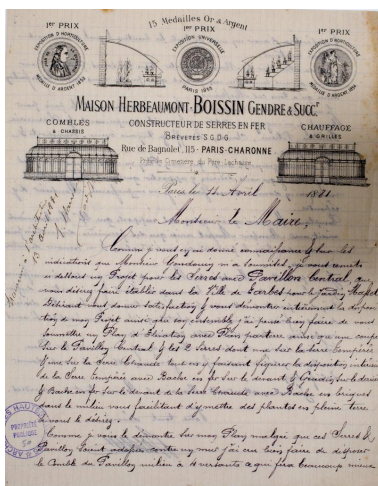 15 Médailles Or & Argent
1er PRIX
1er PRIX
1er PRIX
EXPOSITION D'HORTICULTURE
EXPOSITION UNIVERSELLE
MÉDAILLE D'ARGENT
PARIS 1855
MAISON HERBEAUMONT-BOISSIN GENDRE & SUCCr
CONSTRUCTEUR DE SERRES EN FER
COMBLES
& CHASSIS
BREVETÉS S.G.D.G.
CHAUFFAGE
& GRILLES
Rue de Bagnolet, 115 - PARIS-CHARONNE
Près le Cimetière du Père Lachaise
Paris le 11 Avril 1881
Monsieur le Maire,
Comme je vous en ai donné connaissance & sur les
indications que Monsieur
si dessous un Projet pour les Serres avec Pavillon Central, que
vous désirez faire établir dans la Ville de Tarbes pour le Jardin Massey
donner satisfaction & vous démontrer entièrement la disposition
de mon Projet ainsi que son ensemble, j'ai pensé bien faire de vous
soumettre un Plan d'Élévation avec Plan par terre ainsi qu'une coupe
sur le Pavillon Central & les 2 Serres dont une sur la Serre Tempérée
& une sur la Serre Chaude tout en y faisant figurer la disposition intérieure
de la Serre Tempérée avec Bache en fer sur le devant & Gradin sur le derrière
& Bache en fer sur le devant de la Serre Chaude avec Bache en briques
dans le milieu vous facilitant d'y mettre des plantes en pleine terre
si vous le désirez.
Comme je vous le démontre sur mon Plan malgré que ces Serres &
Pavillon soient adossés contre un mur j'ai cru bien faire de disposer
le Comble du Pavillon milieu à 4 versants ce qui fera beaucoup mieux
PROPRIÉTÉ
PUBLIQUE